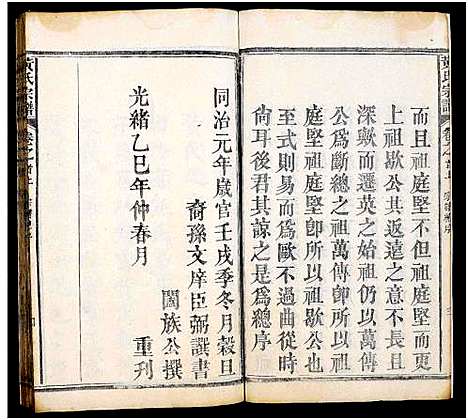 黃氏宗譜
卷之首上
而且祖庭堅不但祖庭堅而更
上祖歇公共返遠之意不長且
深歟而遷英之始祖仍以萬傳
公爲斷總之祖萬傳卽所以祖
庭堅祖庭堅卽所以祖歇公也
至式則易而爲歐不過曲從時
尙耳後君其諒之是爲總序
同治元年歲官壬戌季冬月穀旦
裔孫文庠臣弼譔書
光緒乙巳年仲春月
闔族公撰
重刊
黃氏宗譜
卷之首上